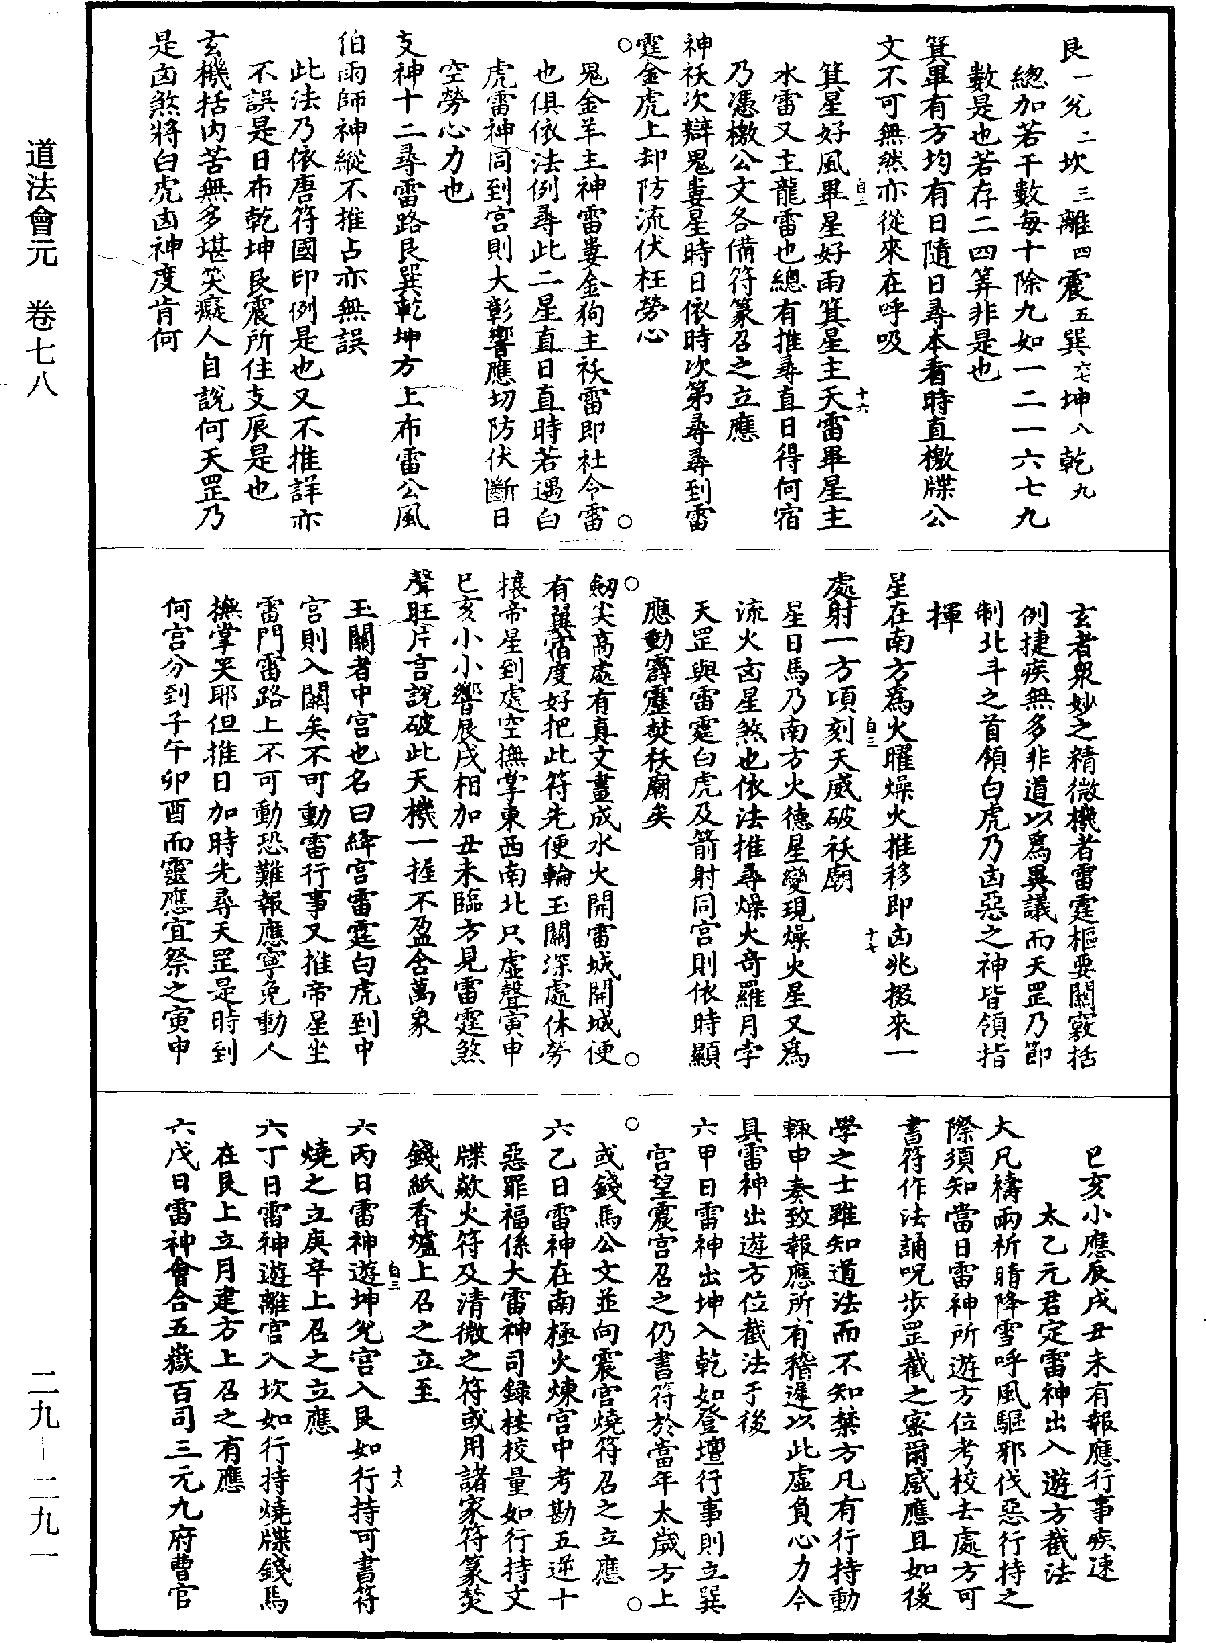 道法會元　卷七八
艮一兌二坎三離四震五巽六七坤八乾九
總加若干數每十除九如一二一六七九
數是也若存二四筭非是也
箕畢有方均有日隨日尋本看時直檄牒公
文不可無然亦從來在呼吸
箕星好風畢星好雨箕星主天雷畢星主
水雷又主龍雷也總有推尋直日得何宿
乃憑檄公文各備符篆召之立應
神祅次辯鬼婁星時日依時次第尋尋到雷
霆金虎上却防流伏枉勞心
鬼金羊主神雷婁金狗主祅雷即社令雷
也俱依法例尋此二星直日直時若遇白
虎雷神同到宮則大彰響應切防伏斷日
空勞心力也
支神十二尋雷路艮巽乾坤方上布雷公風
伯雨師神縱不推占亦無誤
此法乃依唐符國印例是也又不推詳亦
不誤是日布乾坤艮震所住支辰是也
玄機括內苦無多堪笑癡人自說何天罡乃
是凶煞將白虎凶神度肯何
玄者衆妙之精微機者雷霆樞要關竅括
例捷疾無多非道以爲異議而天罡乃節
制北斗之首領白虎乃凶惡之神皆領指
揮
星在南方爲火曜燥火推移即凶兆掇來一
處射一方頃刻天威破祅廟
星日馬乃南方火德星變現燥火星又爲
流火凶星煞也依法推尋燥火奇羅月孛
天罡與雷霆白虎及箭射同宮則依時顯
應動霹靂焚祅廟矣
劒尖高處有真文畫成水火開雷城開城便
有翼宿度好把此符先便輪玉關深處休勞
攘帝星到處空撫掌東西南北只虛聲寅申
巳亥小小響辰戌相加丑未臨方見雷霆煞
聲旺片言說破此天機一握不盈含萬象
玉關者中宮也名曰絳宮雷霆白虎到中
宮則入關矣不可動雷行事又推帝星坐
雷門雷路上不可動恐難報應寧免動人
撫掌笑耶但推日加時先尋天罡是時到
何宮分到子午卯酉而靈應宜祭之寅申
巳亥小應辰戌丑未有報應行事疾速
太乙元君定雷神出入遊方截法
大凡禱雨祈晴降雪呼風驅邪伐惡行持之
際須知當日雷神所遊方位考校去處方可
書符作法誦呪步罡截之密爾感應且如後
學之士雖知道法而不知禁方凡有行持動
輒申奏致報應所有稽遲以此虛負心力今
具雷神出遊方位截法于後
六甲日雷神出坤入乾如登壇行事則立巽
宮望震宮召之仍書符於當年太歲方上
或錢馬公文並向震宮燒符召之立應
六乙日雷神在南極火煉宮中考勘五逆十
惡罪福係大雷神司錄按校量如行持文
牒歘火符及清微之符或用諸家符篆焚
錢紙香爐上召之立至
六丙日雷神遊坤兌宮入艮如行持可書符
燒之立庚辛上召之立應
六丁日雷神遊離宮入坎如行持燒牒錢馬
在艮上立月建方上召之有應
六戊日雷神會合五嶽百司三元九府曹官
二九—二九一